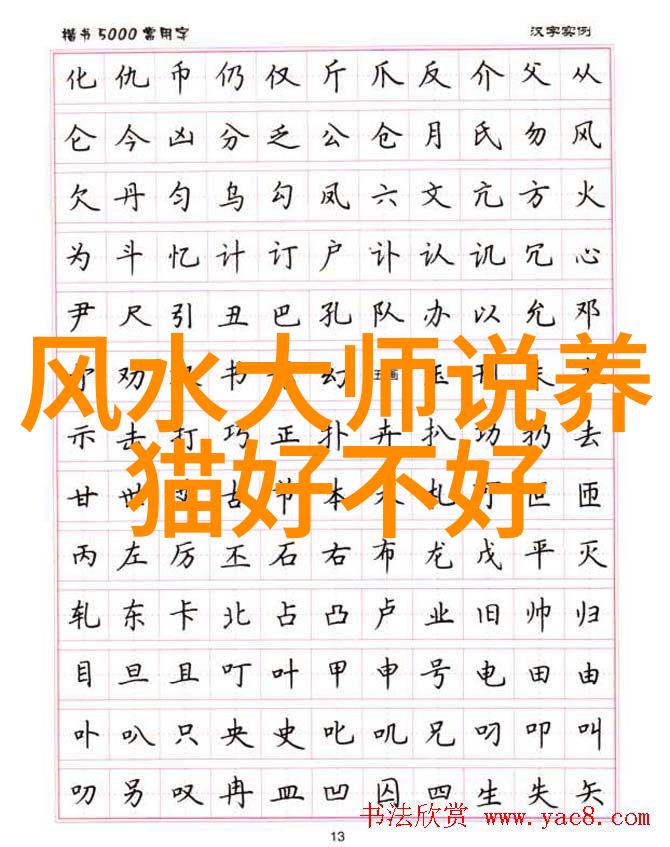 楷书5000常用字 汉字实例
化仇币仍仅斤爪反介父从
仑今凶分乏公仓月氏勿风
欠丹匀乌勾凤六文亢方火
为斗忆计订户讣认讥冗心
尹尺引丑巴孔队办以允邓
劝书幻五画
风水大师说养
示击打巧正扑卉扒功扔去
猫好不好
甘世古节本札可叵匝
丙左厉丕石右布龙戊平灭
轧东卡北占凸卢业旧帅归
目旦且叮叶甲申号电田由
卟叭只央史叱叽兄叨叩叫
叻另叹冉皿凹囚四生失矢
书法欣赏 www.yac8.com
13